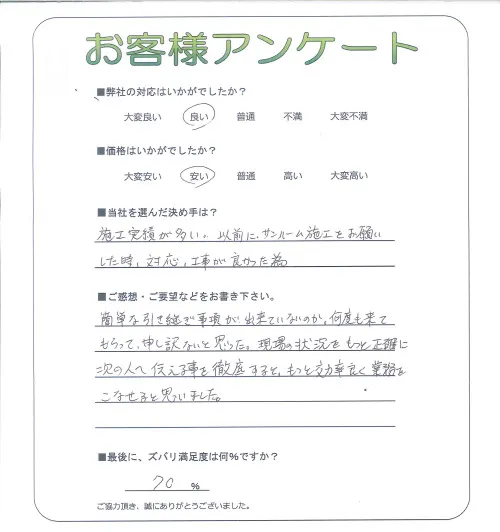 お客様アンケート
■弊社の対応はいかがでしたか？
大変良い 良い 普通 不満 大変不満
■価格はいかがでしたか？
大変安い 安い 普通 高い 大変高い
■当社を選んだ決め手は？
施工実績が多い。以前に、サンルーム施工をお願い
した時、対応、工事が良かった為
■ご感想・ご要望などをお書き下さい。
簡単な引き継ぎ事項が出来ていないのか、何度も来て
もらって、申し訳ないと思った。現場の状況をもっと正確に
次の人へ伝える事を徹底すると、もっと効率良く業務を
こなせると思いました。
■最後に、ズバリ満足度は何％ですか？
70 ％
ご協力頂き、誠にありがとうございました。